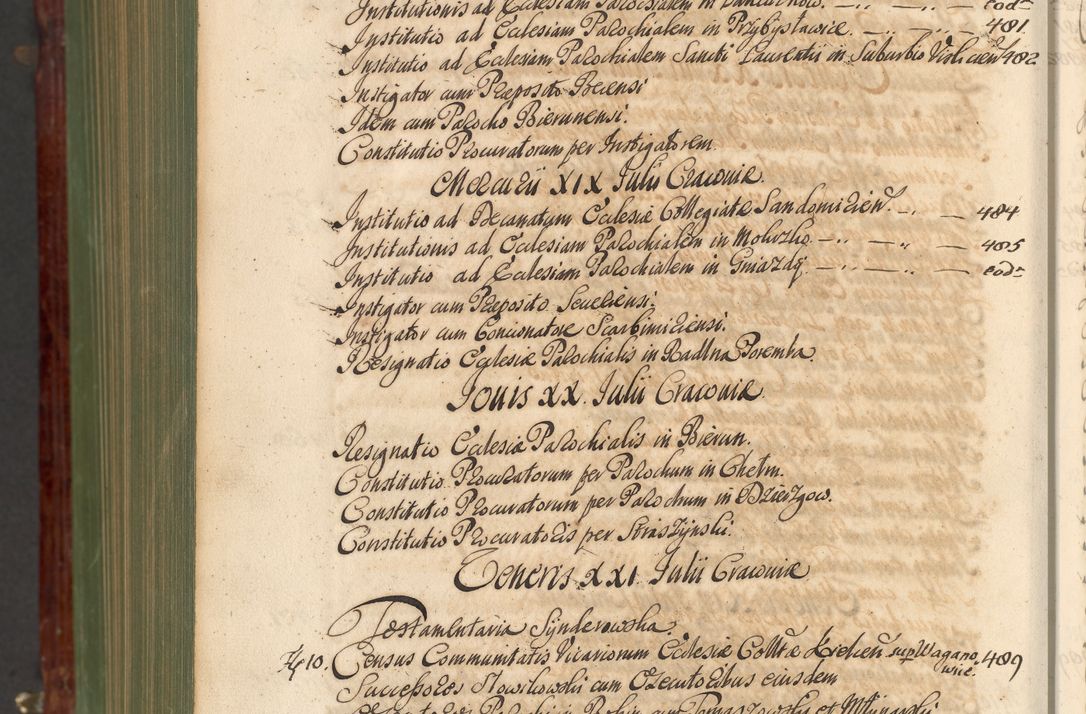 Institutionis ad Ecclesiam Parochialem in — eod~
Institutio ad Ecclesiam Parochialem in Przybysławice. — 481
Institutio ad Ecclesiam Parochialem Sancti Laurentii in Suburbio 482
Instigator cum Præposito
Idem cum Parocho Bierunensi.
Constitutio Procuratorum per Instigatorem.
Mercurii XIX Julii Cracoviæ.
Institutio ad Decanatum Ecclesiæ Collegiatæ Sandomirien. — 484
Institutionis ad Ecclesiam Parochialem in — 485
Institutio ad Ecclesiam Parochialem in Gniazdy. — eod~
Instigator cum Præposito
Instigator cum Concionatore Scarbimiriensi.
Resignatio Ecclesiæ Parochialis in Radlna Poremba.
Jouis XX. Julii Cracoviæ.
Resignatio Ecclesiæ Parochialis in Bierun.
Constitutio Procuratorum per Parochum in Chełm.
Constitutio Procuratorum per Parochum in Dzierzgow.
Constitutio Procuratoris per Straszynski.
Veneris XXI Julii Cracoviæ
Testamentaria Synderowska.
10. Census Communitatis Vicariorum Ecclesiæ Colltæ sup Wagano, 489
wice.
Successores cum Executoribus eiusdem
in cum et